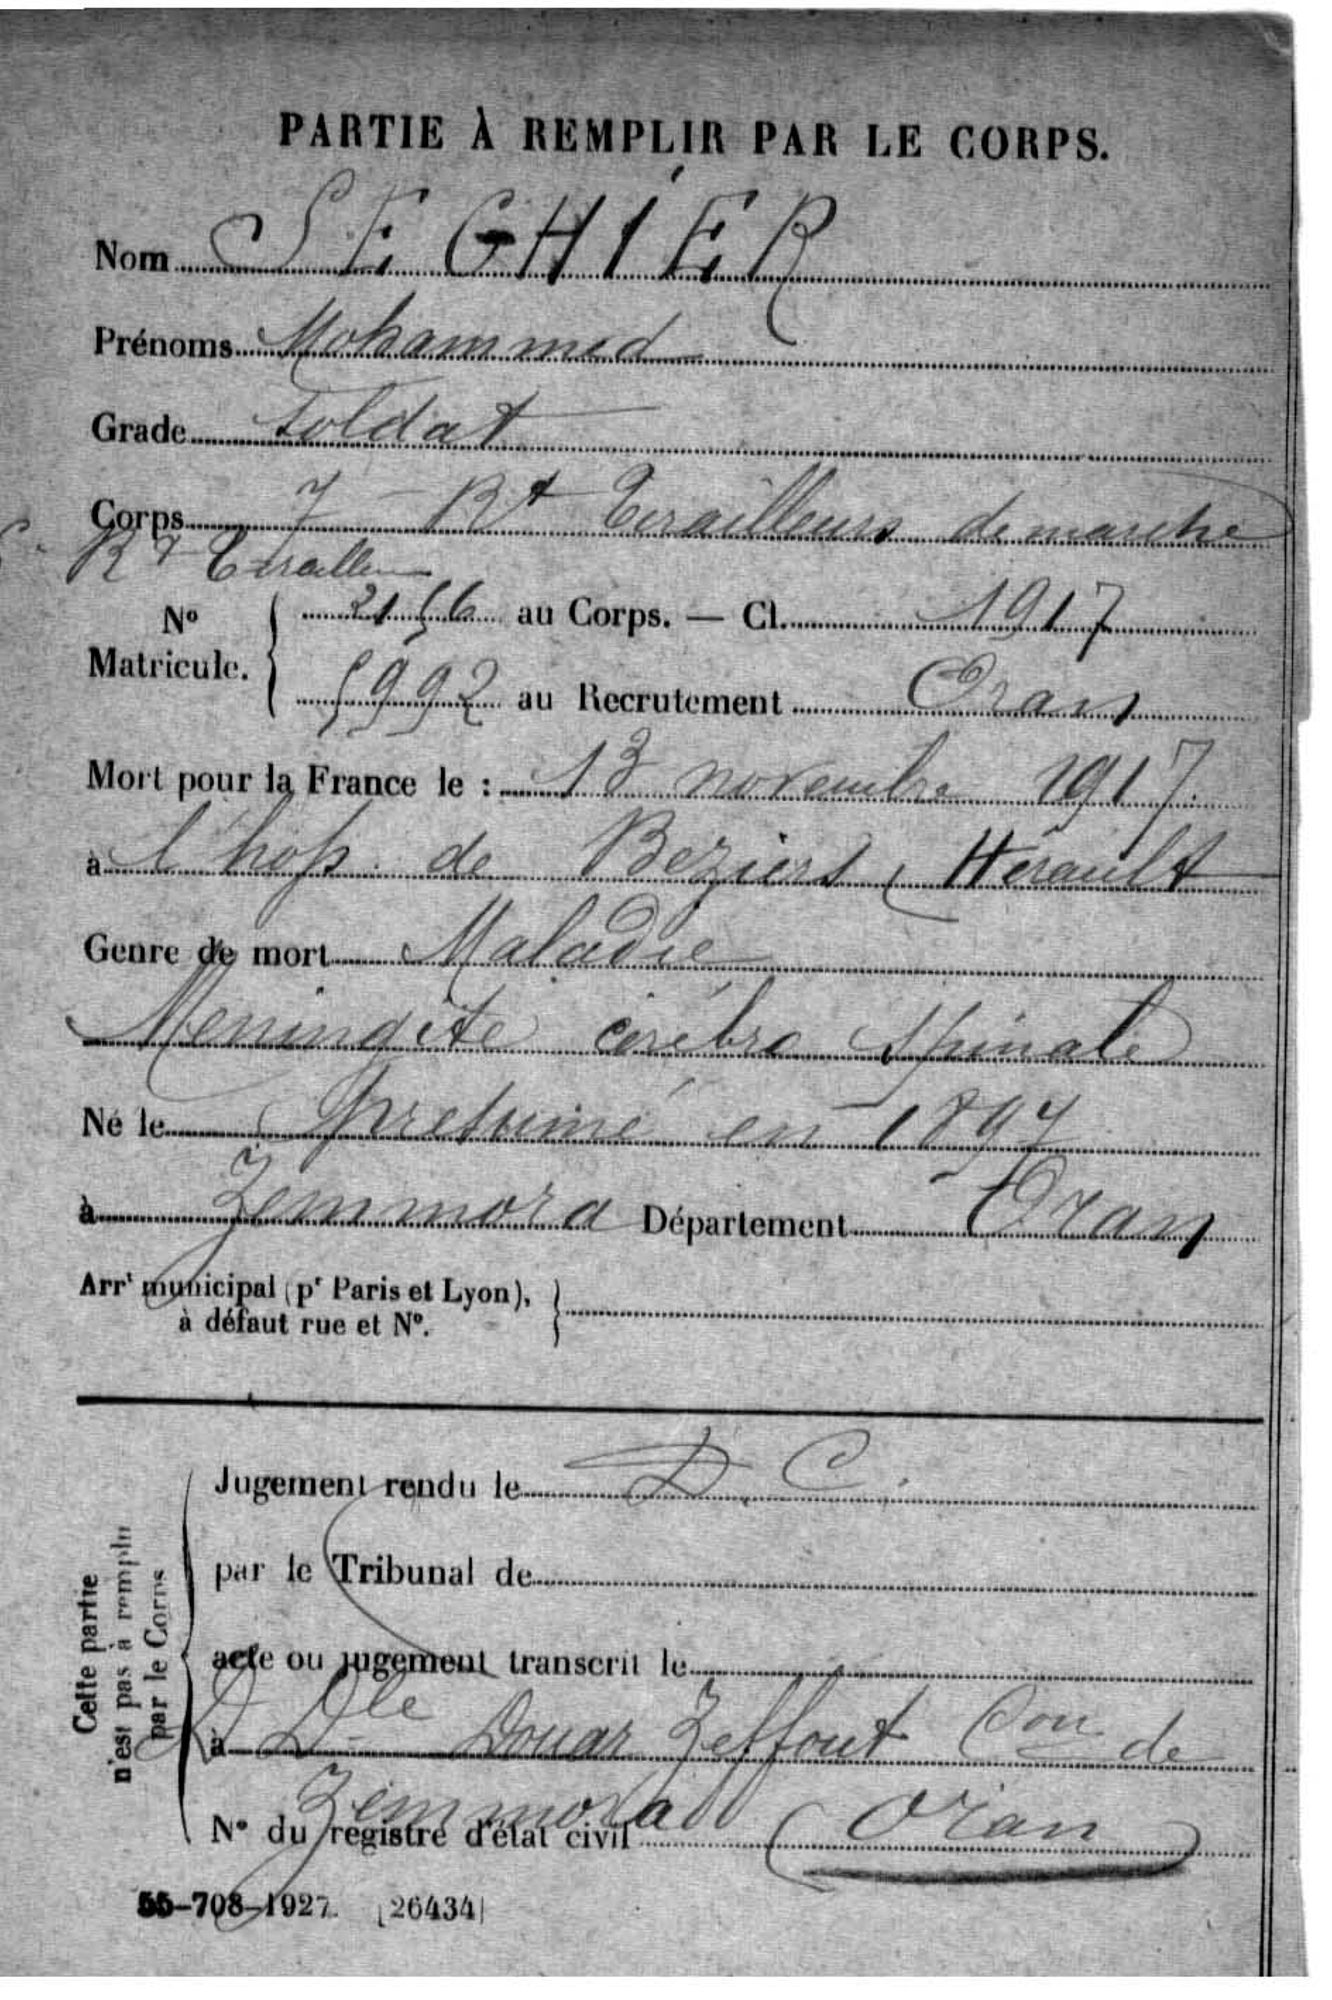 PARTIE À REMPLIR PAR LE CORPS.
Nom SEGHIER
Prénoms Mohammed
Grade Soldat
Corps 7 Rt Tirailleurs de marche
Rt Tirailleurs
No Matricule. 2156 au Corps. — Cl. 1917
5992 au Recrutement Oran
Mort pour la France le : 13 novembre 1917
à l'hop. de Beziers (Hérault
Genre de mort Maladie
Meningite cérébro spinale
Né le presumé en 1897
à Zemmora Département Oran
Arrt municipal (pr Paris et Lyon),
à défaut rue et No.
Cette partie
n'est pas à remplir
par le Corps
Jugement rendu le D. C.
par le Tribunal de
acte ou jugement transcrit le
à D Dle Douar Zeffout Con de
Zemmora
No du registre d'état civil (Oran)
55-708-1927. [26434]